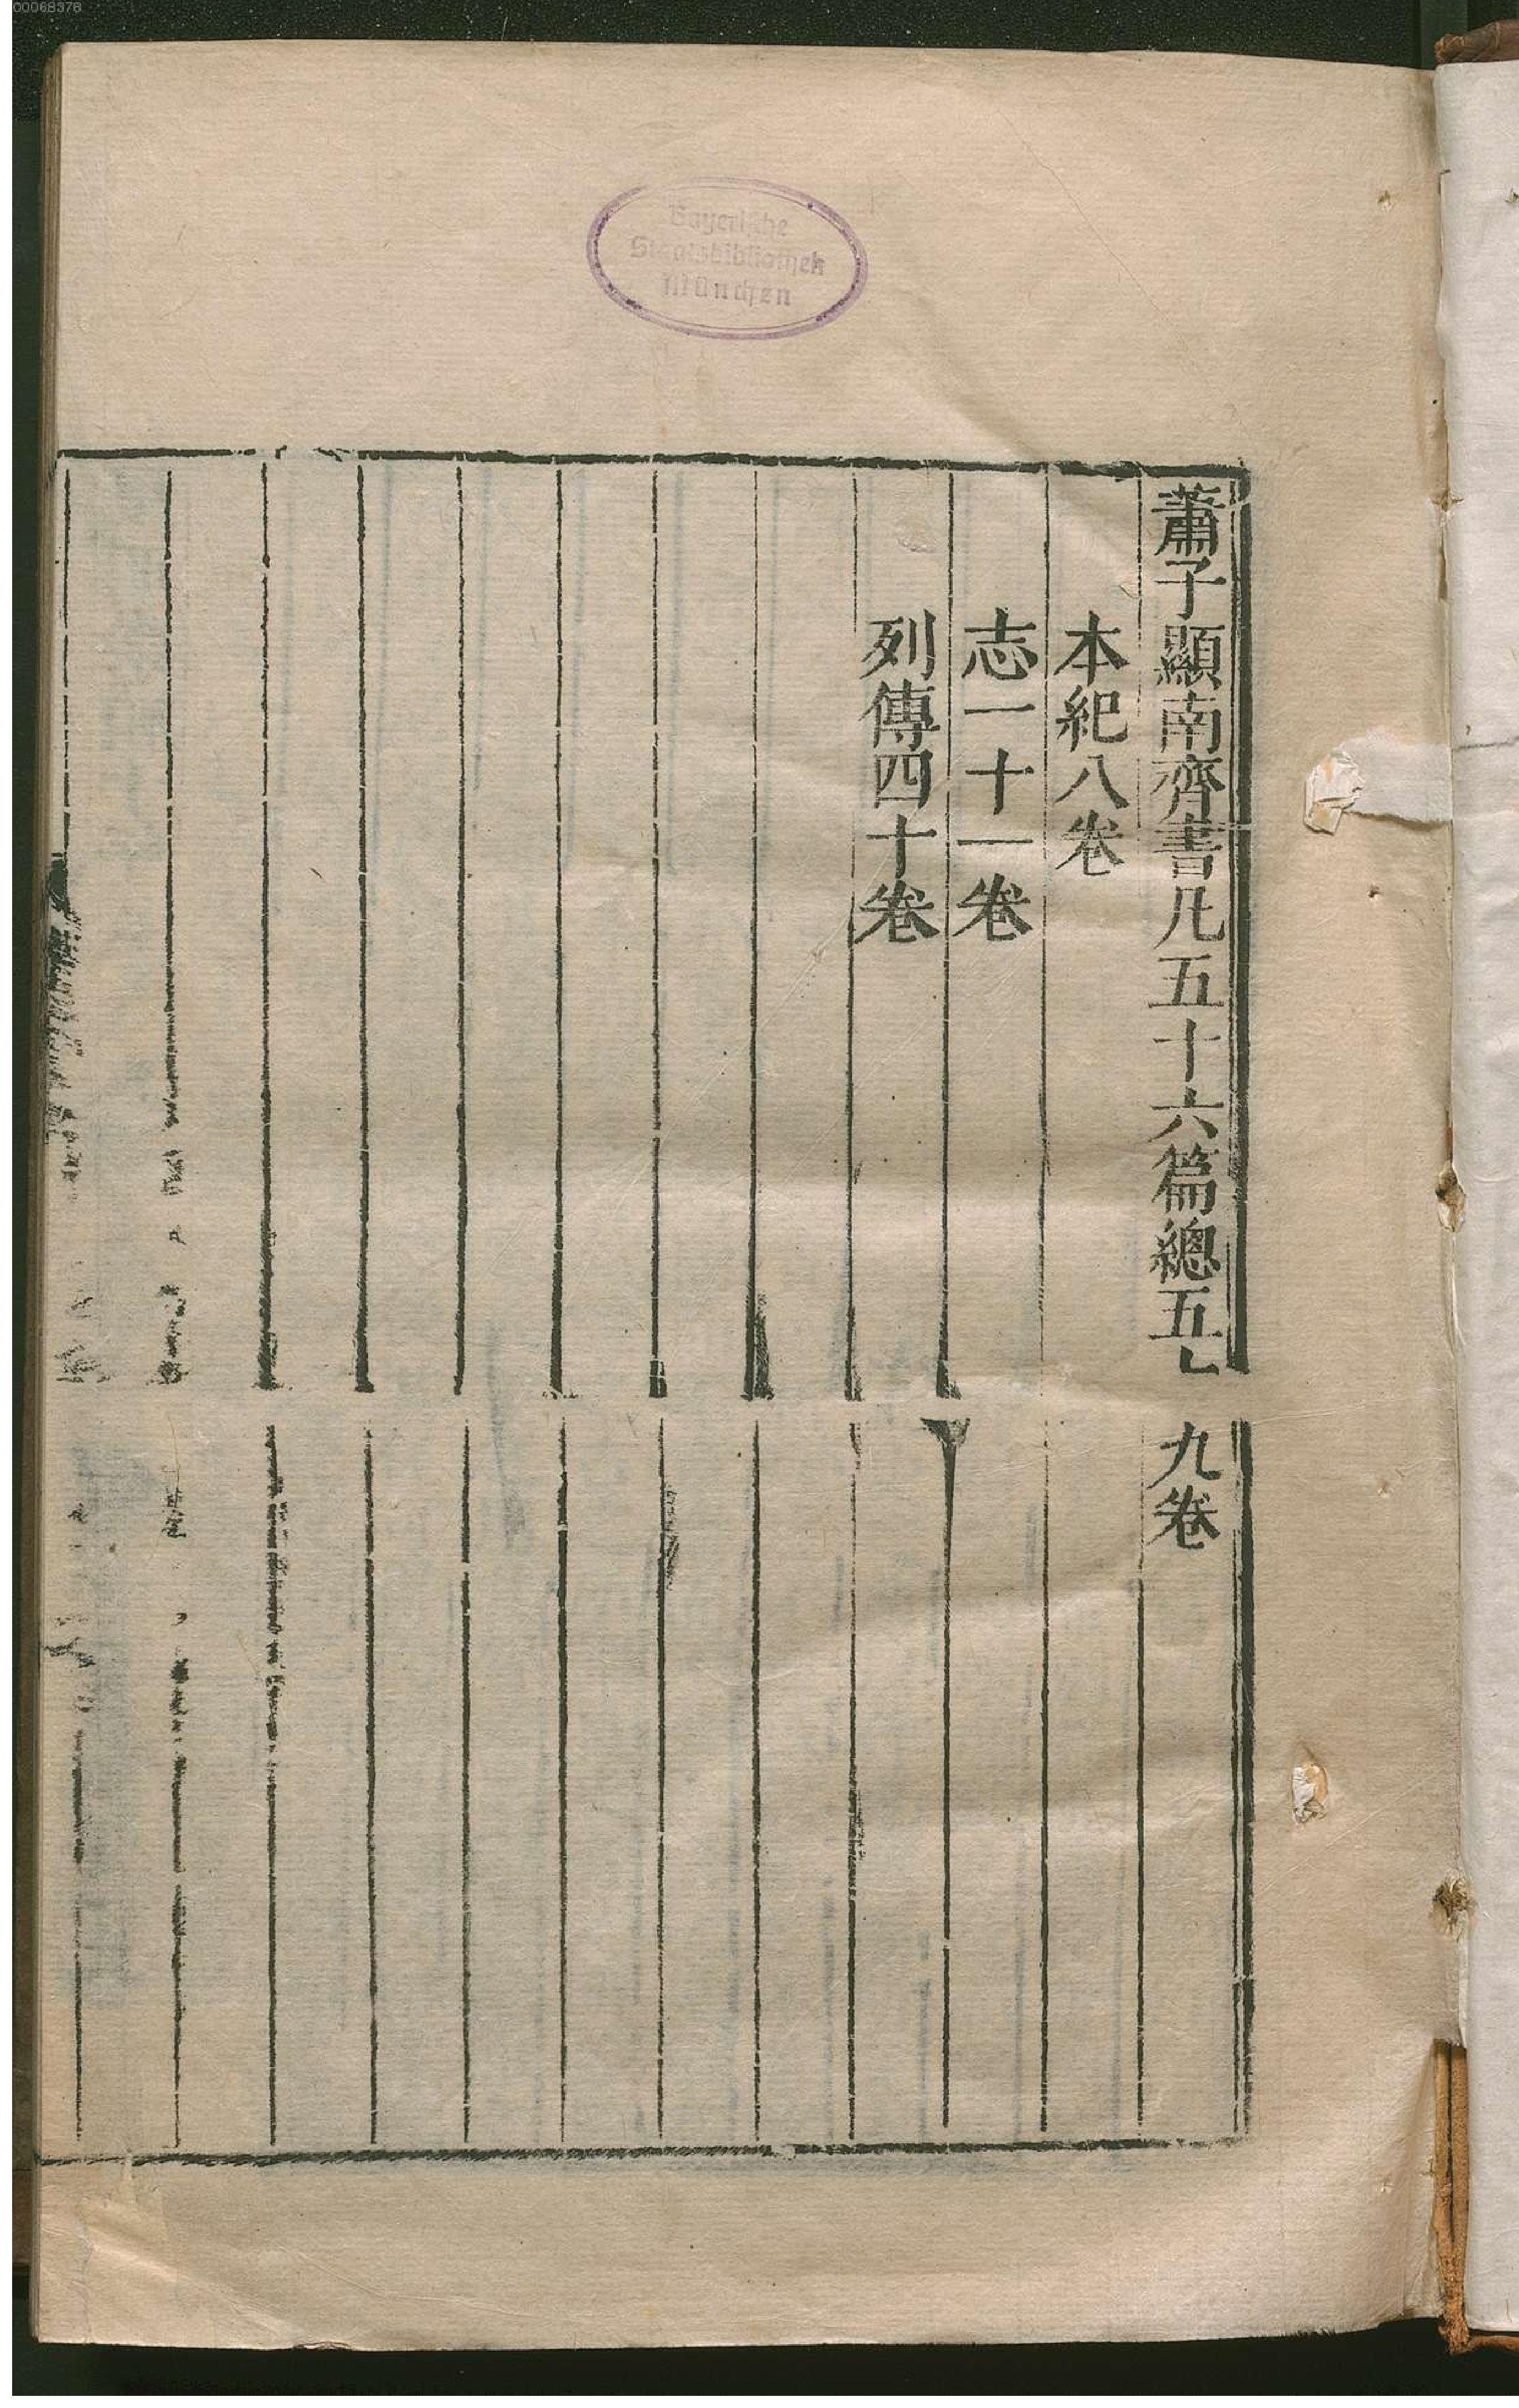 00068378
Bayerische
Staatsbibliothek
München
蕭子顯南齊書凡五十六篇總五十九卷
本紀八卷
志一十一卷
列傳四十卷